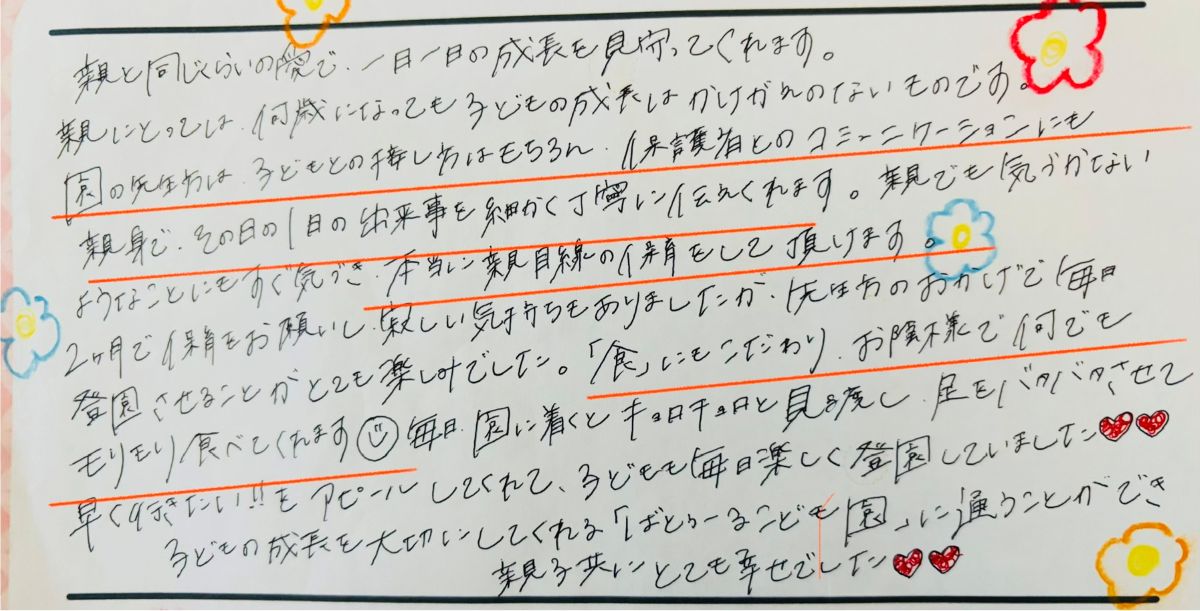 親と同じくらいの愛で、一日一日の成長を見守ってくれます。
親にとっては、何歳になっても子どもの成長はかけがえのないものです。
園の先生方は、子どもとの接し方はもちろん、保護者とのコミュニケーションにも
親身で、その日の1日の出来事を細かく丁寧に伝えくれます。親でも気づかない
ようなことにもすぐ気づき、本当に親目線の保育をして頂けます。
2ヶ月で保育をお願いし、寂しい気持ちもありましたが、先生方のおかげで毎日
登園させることがとても楽しみでした。「食」にもこだわり、お陰様で何でも
モリモリ食べてくれます☺毎日、園に着くとキョロキョロと見渡し、足をバタバタさせて
早く行きたい!!をアピールしてくれて、子どもも毎日楽しく登園していました♥♥
子どもの成長を大切にしてくれる「ばとぅーるこども園」に通うことができ
親子共にとても幸せでした♥♥